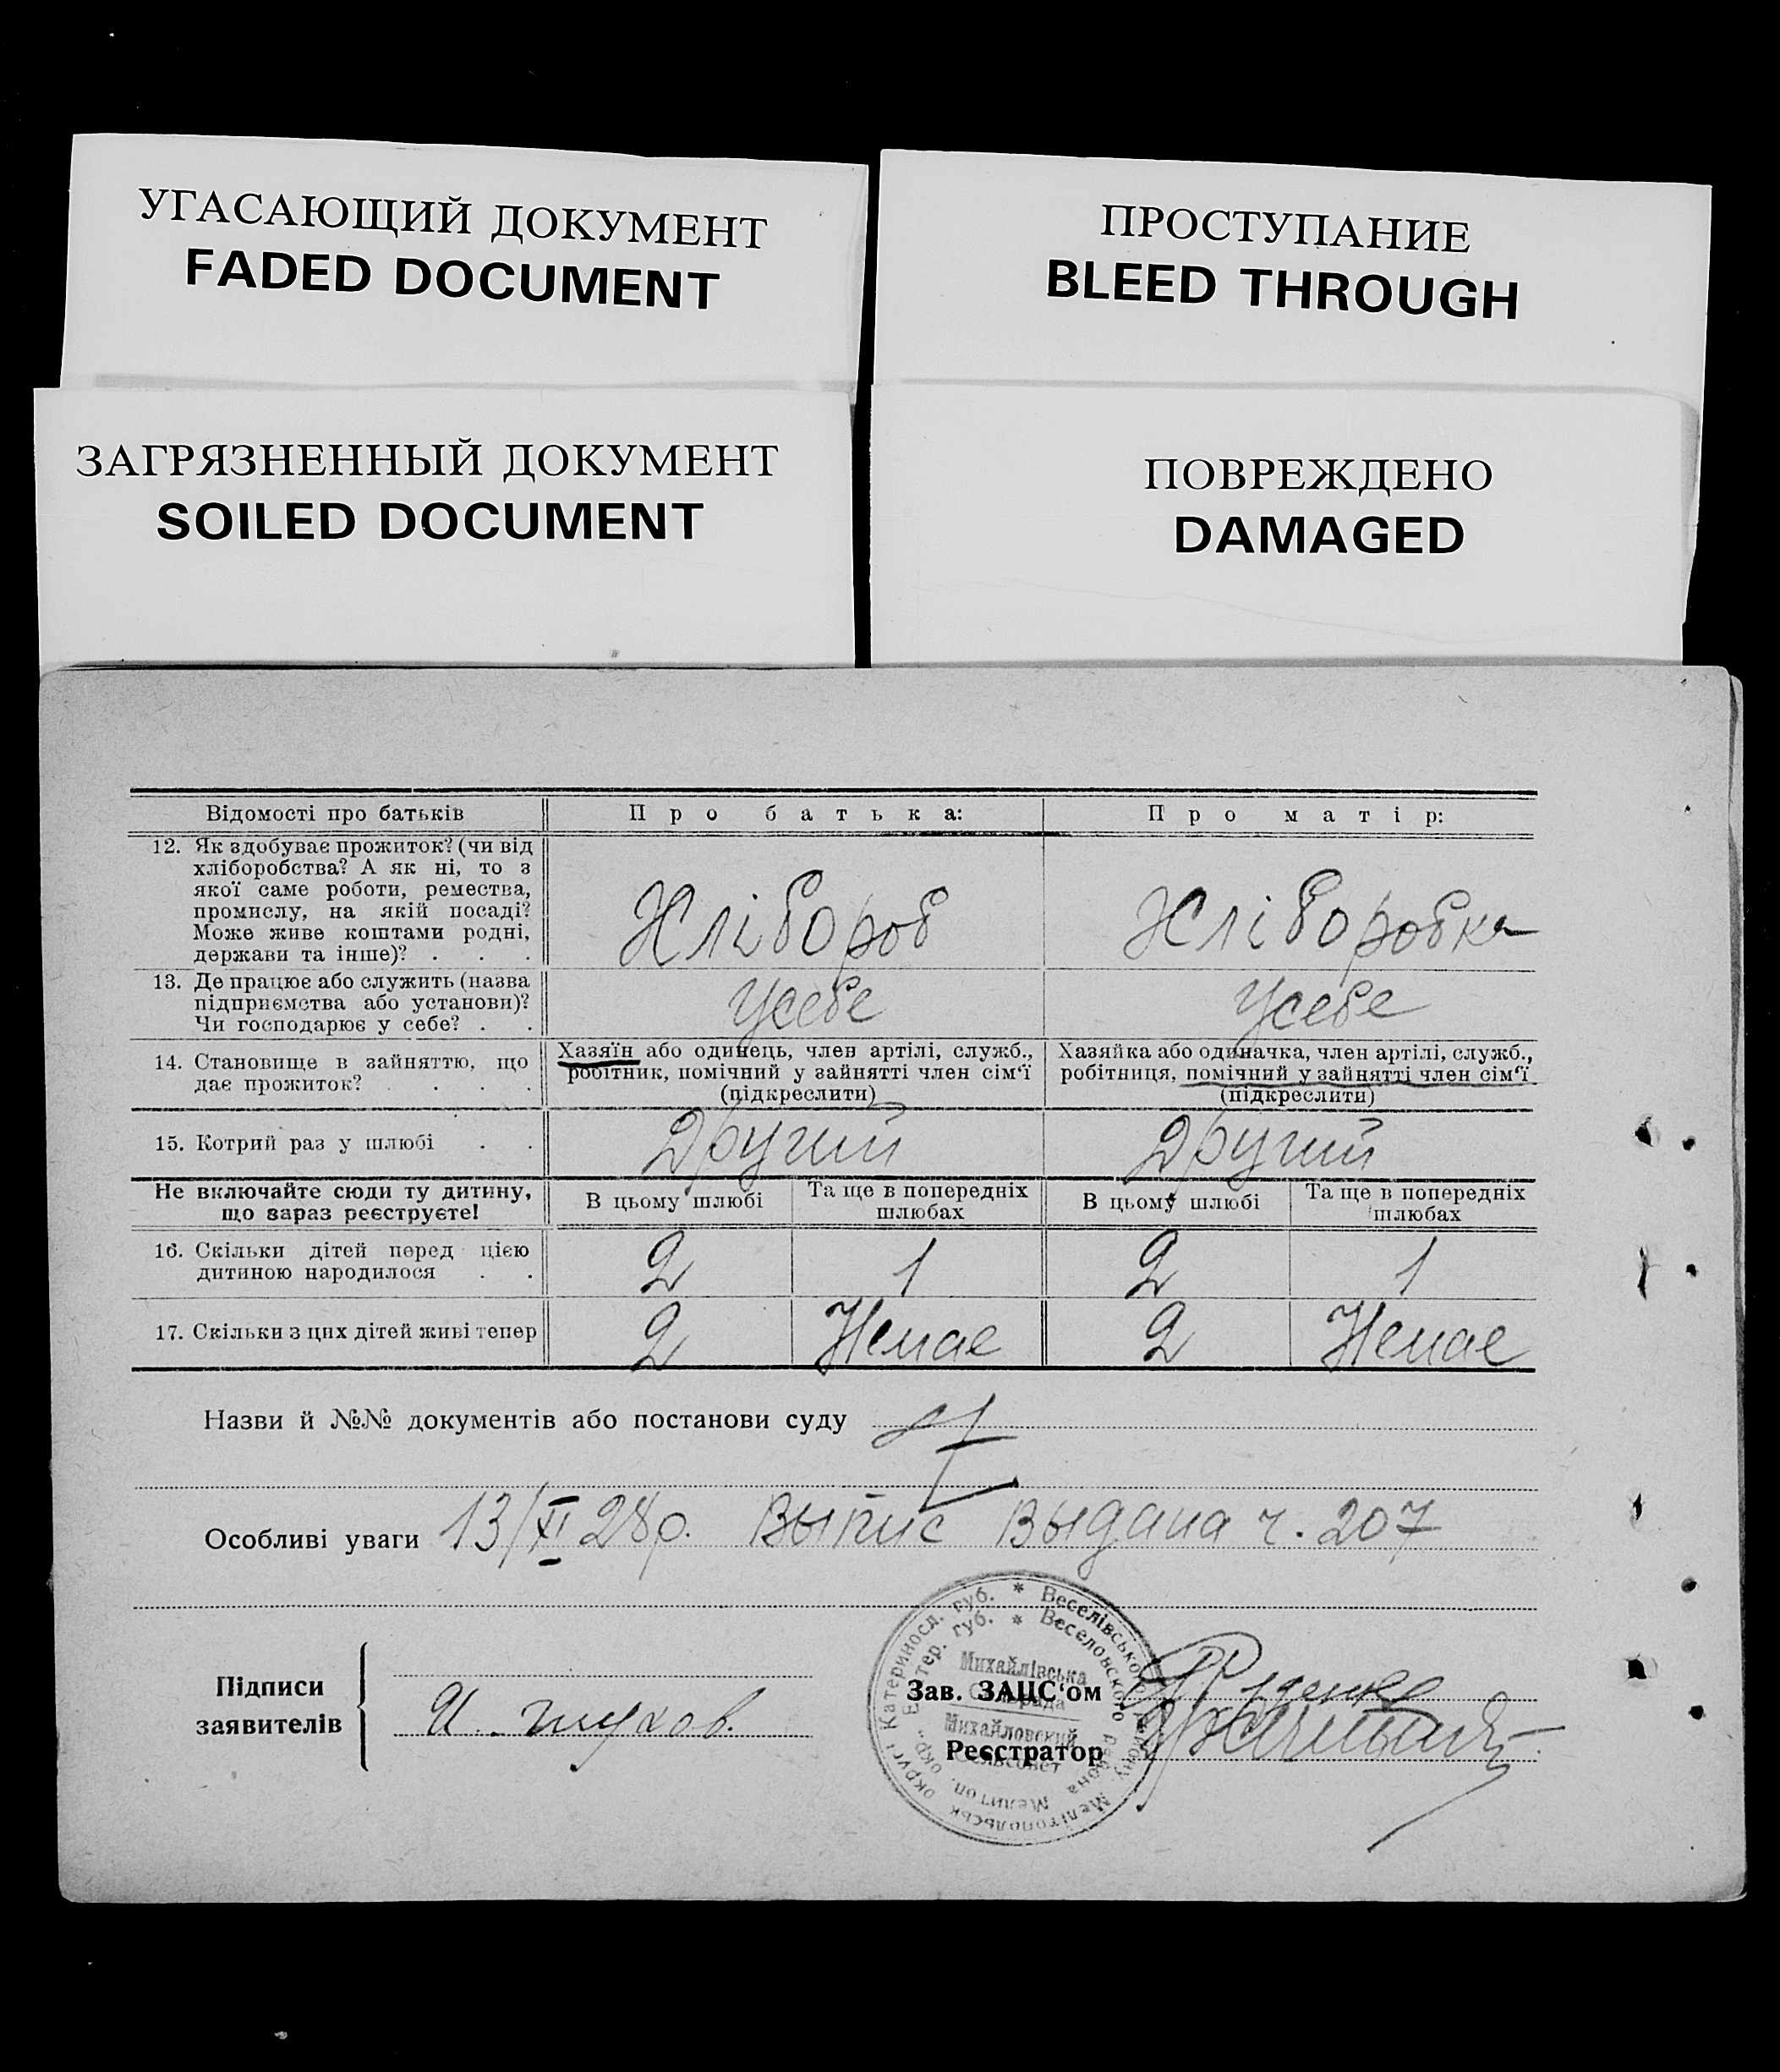 УГАСАЮЩИЙ ДОКУМЕНТ
FADED DOCUMENT
ПРОСТУПАНИЕ
BLEED THROUGH
ЗАГРЯЗНЕННЫЙ ДОКУМЕНТ
SOILED DOCUMENT
ПОВРЕЖДЕНО
DAMAGED
Відомості про батьків
Про батька:
Про матір:
12. Як здобуває прожиток? (чи від
хліборобства? А як ні, то з
якої саме роботи, ремества,
промислу, на якій посаді?
Може живе коштами родні,
держави та інше)? . . .
Хлібороб
Хліборобка
13. Де працює або служить (назва
підприємства або установи)?
Чи господарює у себе? . .
Усебе
Усебе
14. Становище в зайняттю, що
дає прожиток? . . . .
Хазяїн або одинець, член артілі, служб.,
робітник, помічний у зайнятті член сім'ї
(підкреслити)
Хазяйка або одиначка, член артілі, служб.,
робітниця, помічний у зайнятті член сім'ї
(підкреслити)
15. Котрий раз у шлюбі . .
Другий
Другий
Не включайте сюди ту дитину,
що зараз реєструєте!
В цьому шлюбі
Та ще в попередніх
шлюбах
В цьому шлюбі
Та ще в попередніх
шлюбах
16. Скільки дітей перед цією
дитиною народилося . .
2
1
2
1
17. Скільки з цих дітей живі тепер
2
Немає
2
Немає
Назви й №№ документів або постанови суду
Особливі уваги 13/XI 28р. Выпис Выдана ч. 207
Підписи
заявителів
И.
Зав. ЗАЦС'ом
Реєстратор
Катериносл. губ. * Веселівського району Мелітопольськ округі
Екатер. губ. * Веселовского района Мелитоп. окр.
Михайлівська
Сільрада
Михайловский
Сельсовет